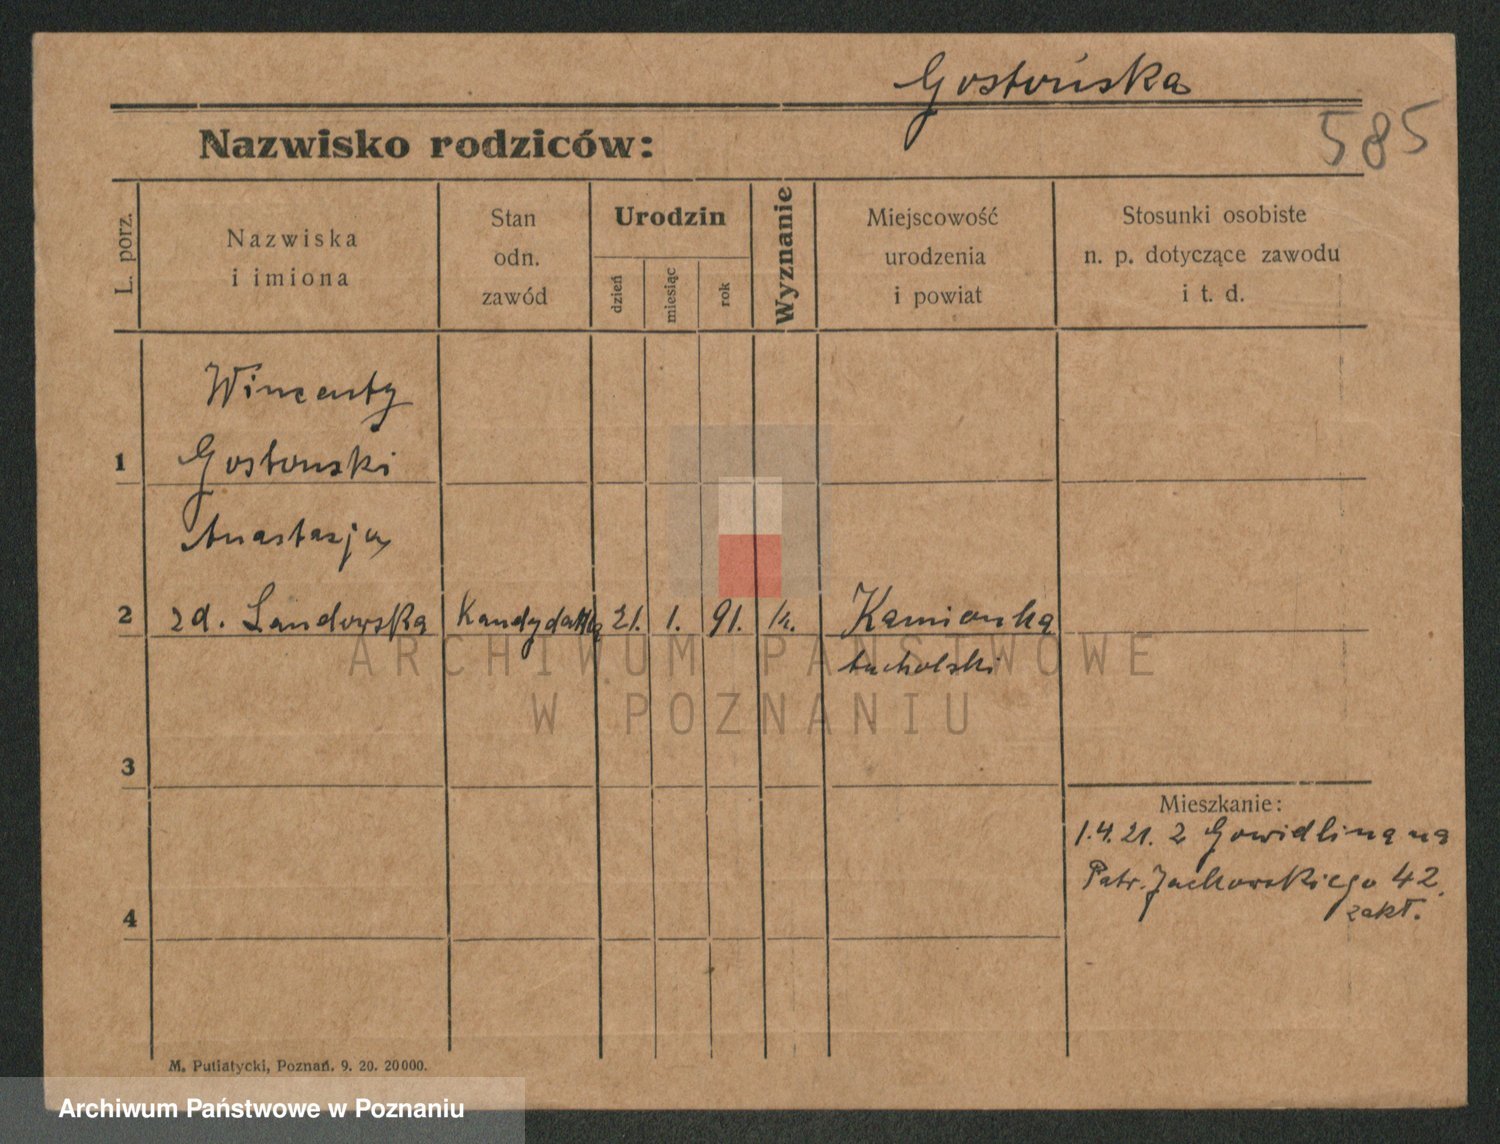 Gostońska
585
Nazwisko rodziców:
L. porz.
Nazwiska
i imiona
Stan
odn.
zawód
Urodzin
dzień
miesiąc
rok
Wyznanie
Miejscowość
urodzenia
i powiat
Stosunki osobiste
n. p. dotyczące zawodu
i t. d.
Wincenty
1 Gostonski
Anastazja
2 zd. Landowska Kandydatką 21. 1. 91. k. Kamionka
tucholski
ARCHIWUM PAŃSTWOWE
W POZNANIU
3
Mieszkanie:
1.4.21. z Gowidlina na
Patr. Jackowskiego 42.
zakł.
4
M. Putiatycki, Poznań. 9. 20. 20000.
Archiwum Państwowe w Poznaniu